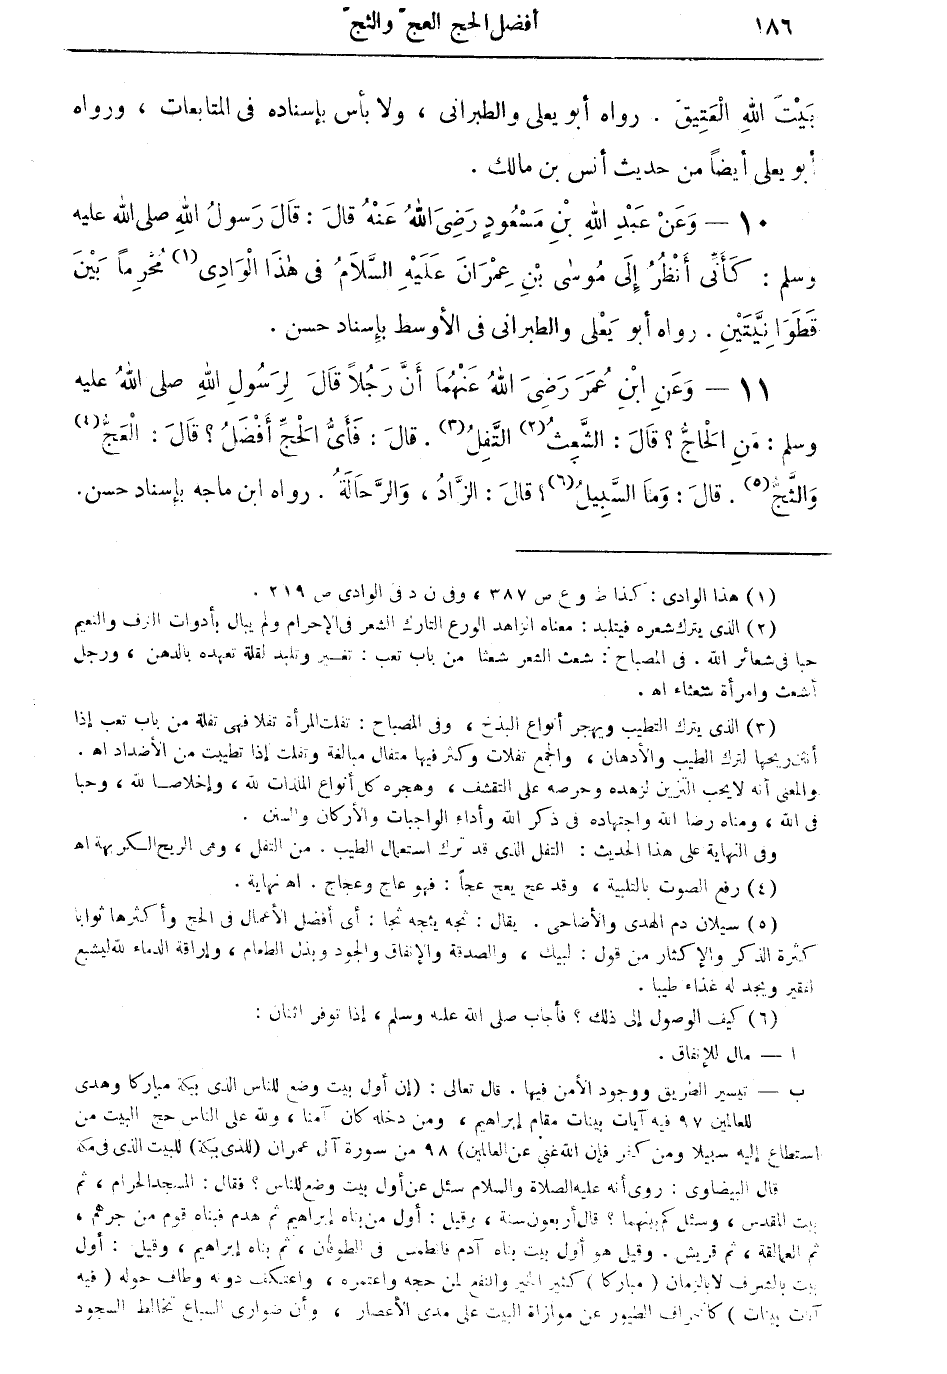 ١٨٦ أفضل الحج العج والثج
بَيْتَ اللهِ الْعَتِيقَ . رواه أبو يعلى والطبرانى ، ولا بأس بإسناده فى المتابعات ، ورواه
أبو يعلى أيضاً من حديث أنس بن مالك .
١٠ — وَعَنْ عَبْدِ اللهِ بْنِ مَسْعُودٍ رَضِيَ اللهُ عَنْهُ قالَ : قَالَ رَسولُ اللهِ صلى الله عليه
وسلم : كَأَنِّى أَنْظُرُ إِلَى مُوسٰى بْنِ عِمْرَانَ عَلَيْهِ السَّلَامُ فى هٰذَا الْوَادِى(١) مُحْرِماً بَيْنَ
قَطَوَانِيَّتَيْنِ . رواه أبو يَعْلى والطبرانى فى الأوسط بإسناد حسن .
١١ — وَعَنِ ابْنِ عُمَرَ رَضِيَ اللهُ عَنْهُمَا أَنَّ رَجُلاً قَالَ لِرَسُولِ اللهِ صلى اللهُ عليه
وسلم : مَنِ الْحَاجُّ ؟ قَالَ : الشَّعِثُ(٢) التَّفِلُ(٣) . قالَ : فَأَىُّ الْحَجِّ أَفْضَلُ ؟ قَالَ : الْعَجُّ(٤)
وَالثَّجُّ(٥) . قالَ : وَمَا السَّبِيلُ(٦) ؟ قالَ : الزَّادُ ، وَالرَّحَالَةُ . رواه ابن ماجه بإسناد حسن .
(١) هذا الوادى : كذا ط و ع ص ٣٨٧ ، وفى ن د فى الوادى ص ٢١٩ .
(٢) الذى يترك شعره فيتلبد : معناه الزاهد الورع التارك الشعر فى الإحرام ولم يبال بأدوات الترف والنعيم
حبا فى شعائر الله . فى المصباح : شعث الشعر شعثا من باب تعب : تغير وتلبد لقلة تعهده بالدهن ، ورجل
أشعث وامرأة شعثاء اه .
(٣) الذى يترك التطيب ويهجر أنواع البذخ ، وفى المصباح : تفلت المرأة تفلا فهى تفلة من باب تعب إذا
أنتن ريحها لترك الطيب والأدهان ، والجمع تفلات وكثر فيها متفال مبالغة وتفلت إذا تطيبت من الأضداد اه .
والمعنى أنه لا يحب التزين لزهده وحرصه على التقشف ، وهجره كل أنواع الملذات لله ، وإخلاصا لله ، وحبا
فى الله ، ومناه رضا الله واجتهاده فى ذكر الله وأداء الواجبات والأركان والسنن .
وفى النهاية على هذا الحديث : التفل الذى قد ترك استعمال الطيب . من التفل ، وهى الريح الكريهة اه
(٤) رفع الصوت بالتلبية ، وقد عج يعج عجاً : فهو عاج وعجاج . اه نهاية .
(٥) سيلان دم الهدى والأضاحى . يقال : ثجه يثجه ثجا : أى أفضل الأعمال فى الحج وأكثرها ثوابا
كثرة الذكر والإكثار من قول : لبيك ، والصدقة والإنفاق والجود وبذل الطعام ، وإراقة الدماء لله ليشبع
الفقير ويجد له غذاء طيبا .
(٦) كيف الوصول إلى ذلك ؟ فأجاب صلى الله عليه وسلم ، إذا توفر اثنان :
ا — مال للإنفاق .
ب — تيسير الطريق ووجود الأمن فيها . قال تعالى : (إن أول بيت وضع للناس الذى ببكة مباركا وهدى
للعالمين ٩٧ فيه آيات بينات مقام إبراهيم ، ومن دخله كان آمنا ، ولله على الناس حج البيت من
استطاع إليه سبيلا ومن كفر فإن الله غنى عن العالمين) ٩٨ من سورة آل عمران (للذى ببكة) للبيت الذى فى مكة
قال البيضاوى : روى أنه عليه الصلاة والسلام سئل عن أول بيت وضع للناس ؟ فقال : المسجد الحرام ، ثم
بيت المقدس ، وسئل كم بينهما ؟ قال أربعون سنة ، وقيل : أول من بناه إبراهيم ثم هدم فبناه قوم من جرهم ،
ثم العمالقة ، ثم قريش . وقيل هو أول بيت بناه آدم فانطمس فى الطوفان ، ثم بناه إبراهيم ، وقيل : أول
بيت بالشرف لا بالزمان ( مباركا ) كثير الخير والنفع لمن حجه واعتمره ، واعتكف دونه وطاف حوله ( فيه
آيات بينات ) كانحراف الطيور عن موازاة البيت على مدى الأعصار ، وأن ضوارى السباع تخالط السجود